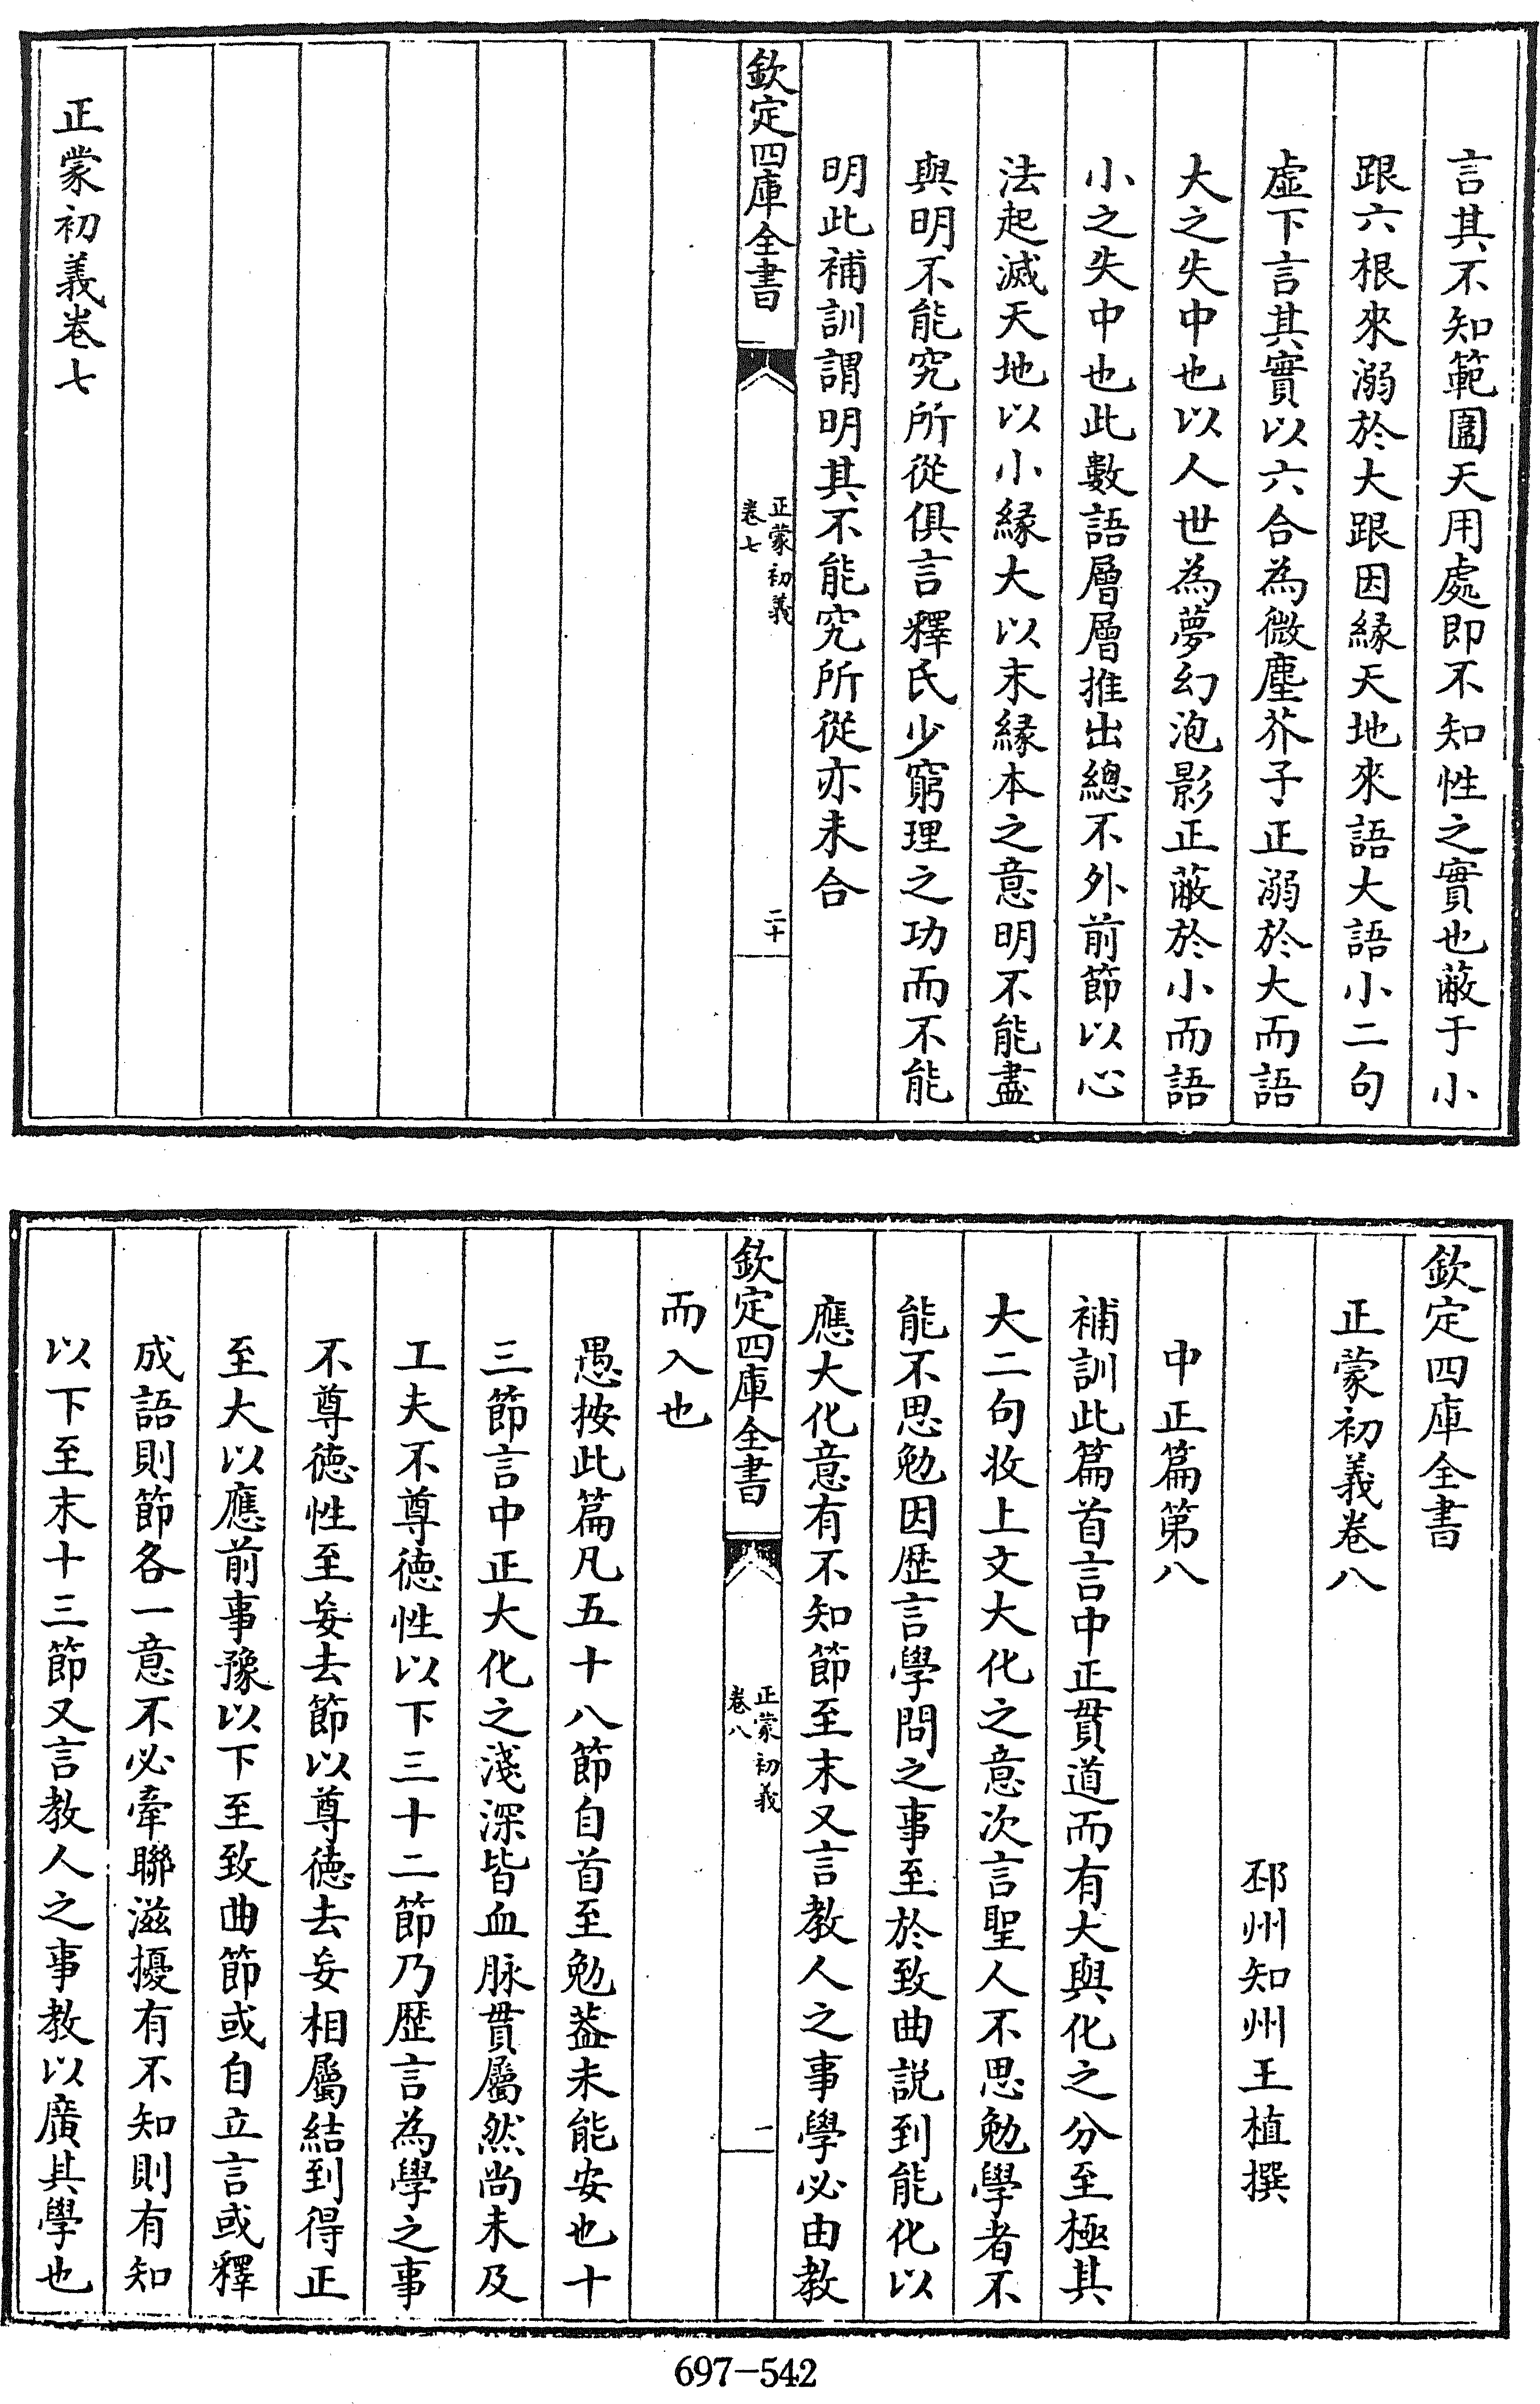 言其不知範圍天用處即不知性之實也蔽于小
跟六根來溺於大跟因緣天地來語大語小二句
虛下言其實以六合為微塵芥子正溺於大而語
大之失中也以人世為夢幻泡影正蔽於小而語
小之失中也此數語層層推出總不外前節以心
法起滅天地以小緣大以末緣本之意明不能盡
與明不能究所從俱言釋氏少窮理之功而不能
明此補訓謂明其不能究所從亦未合
欽定四庫全書
正蒙初義
卷七
二十
正蒙初義卷七
欽定四庫全書
正蒙初義卷八
邳州知州王植撰
中正篇第八
補訓此篇首言中正貫道而有大與化之分至極其
大二句收上文大化之意次言聖人不思勉學者不
能不思勉因歴言學問之事至於致曲説到能化以
應大化意有不知節至末又言教人之事學必由教
欽定四庫全書
正蒙初義
卷八
一
而入也
愚按此篇凡五十八節自首至勉葢未能安也十
三節言中正大化之淺深皆血脉貫屬然尚未及
工夫不尊徳性以下三十二節乃歴言為學之事
不尊徳性至妄去節以尊徳去妄相屬結到得正
至大以應前事豫以下至致曲節或自立言或釋
成語則節各一意不必牽聯滋擾有不知則有知
以下至末十三節又言教人之事教以廣其學也
697-542